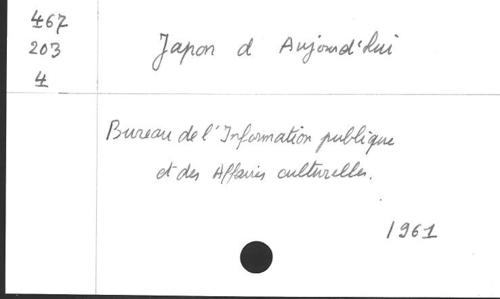 467
203
4
Japon d Aujourd'hui
Bureau de l'Information publique
et des Affaires culturelles.
1961